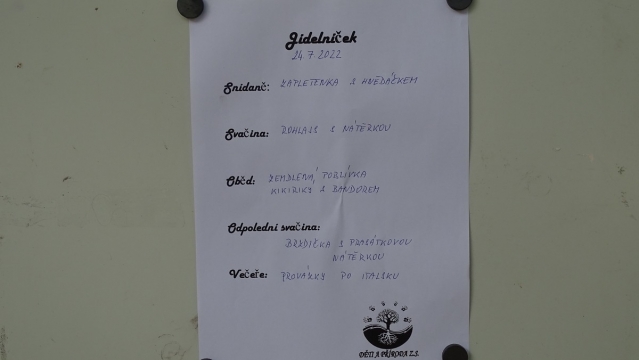 Jídelníček
24.7.2022
Snídaně: ZAPLETENKA S HNĚDÁČKEM
Svačina: ROHLASS S NÁTĚRKOU
Oběd: ZEMDLENÁ POBLÍVKA
KIKIRIKY S BANDOREM
Odpolední svačina:
BRADIČKA S PRASÁTKOVOU
NÁTĚRKOU
Večeře: PROVÁZKY PO ITALSKU
DĚTI A PŘÍRODA Z.S.